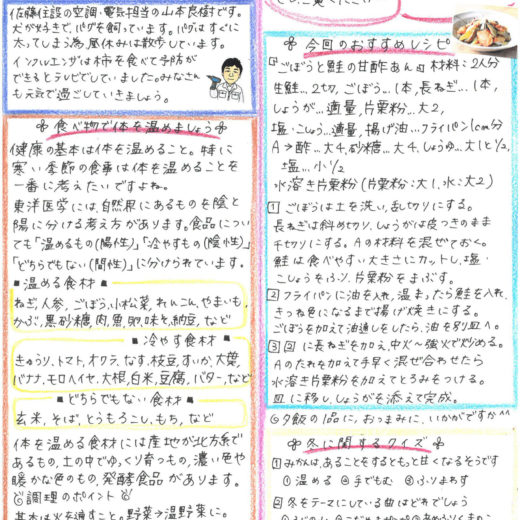 佐藤住設の空調・電気担当の山本良樹です。
犬が好きで、パグを飼っています。パグはすぐに
太ってしまう為、昼休みは散歩しています。
インフルエンザは柿を食べて予防が
できるとテレビでしていました。みなさん
も元気で過ごしていきましょう。
食べ物で体を温めましょう
健康の基本は体を温めること。特に
寒い季節の食事は体を温めることを
一番に考えたいですよね。
東洋医学には、自然界にあるものを陰と
陽に分ける考え方があります。食品につい
ても「温めるもの(陽性)」「冷やすもの(陰性)」
「どちらでもない(間性)」に分けられています。
■温める食材■
ねぎ、人参、ごぼう、小松菜、れんこん、やまいも、
かぶ、黒砂糖、肉、魚、卵、味そ、納豆、など
■冷やす食材■
きゅうり、トマト、オクラ、なす、枝豆、すいか、大葉、
バナナ、モロヘイヤ、大根、白米、豆腐、バター、など
■どちらでもない食材■
玄米、そば、とうもろこし、もち、など
体を温める食材には産地が北方系で
あるもの、土の中でゆっくり育つもの、濃い色や
暖かな色のもの、発酵食品があります。
調理のポイント
基本は火を通すこと。野菜→温野菜に。
今回のおすすめレシピ
『ごぼうと鮭の甘酢あん』 材料：2人分
生鮭…2切、ごぼう…1本、長ねぎ…1本、
しょうが…適量、片栗粉…大2、
塩・こしょう…適量、揚げ油…フライパン1cm分
A→酢…大4、砂糖…大4、しょうゆ…大1と1/2、
塩…小1/2
水溶き片栗粉(片栗粉：大1、水：大2)
1 ごぼうは土を洗い、乱切りにする。
長ねぎは斜め切り、しょうがは皮つきのまま
千切りにする。Aの材料を混ぜておく。
鮭は食べやすい大きさにカットし、塩・
こしょうをふり、片栗粉をまぶす。
2 フライパンに油を入れ、温まったら鮭を入れ、
きつね色になるまで揚げ焼きにする。
ごぼうを加えて油通しをしたら、油を別皿へ。
3 2に長ねぎを加え、中火～強火で炒める。
Aのたれを加えて手早く混ぜ合わせたら
水溶き片栗粉を加えてとろみをつける。
皿に移し、しょうがを添えて完成。
夕飯の1品に、おつまみに、いかがですか^^
冬に関するクイズ
①みかんは、あることをするともっと甘くなるそうです
①温める ②手でもむ ③ふりまわす
②冬をテーマにしている曲はどれでしょう